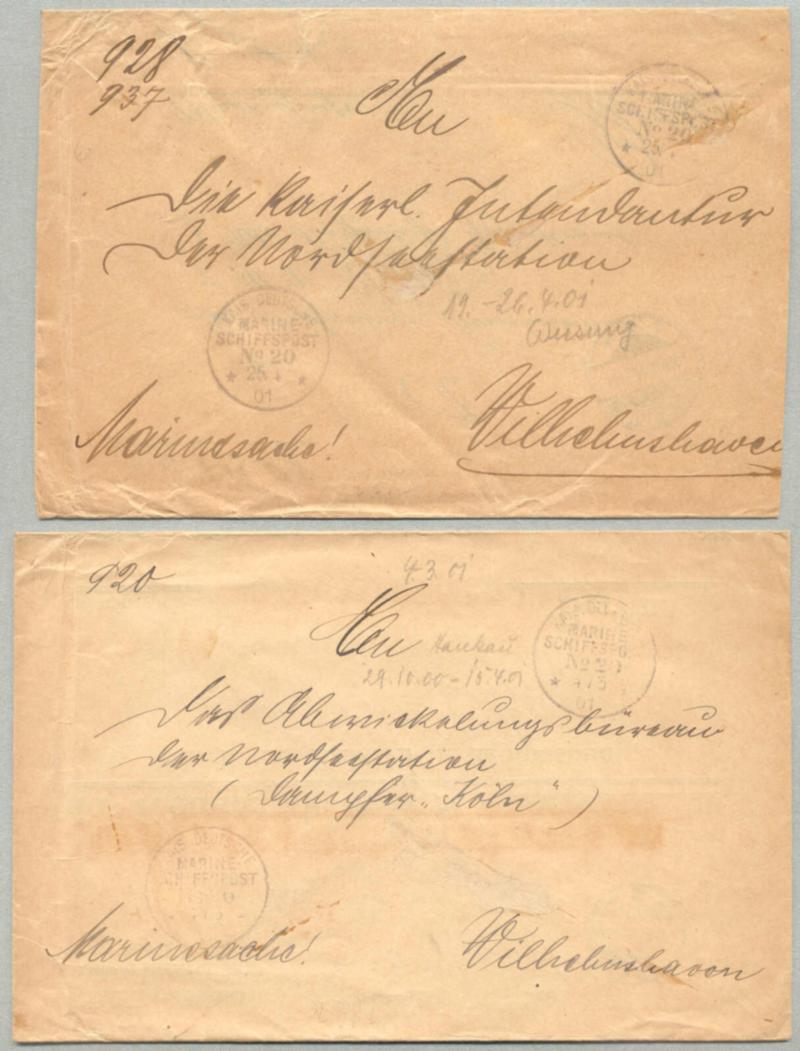 928
937
An
KAIS. DEUTSCHE
MARINE-
SCHIFFSPOST
No 20
25
01
Die Kaiserl. Intendantur
der Nordseestation
19. - 26.4.01
Wusung
KAIS. DEUTSCHE
MARINE-
SCHIFFSPOST
No 20
25 4
01
Marinesache!
Wilhelmshaven
920
4.3.01
An
Hankau
29.10.00 - 15.4.01
MARINE
SCHIFFSPO
No 20
4/3
01
Das Abwickelungsbüreau
der Nordseestation
(Dampfer „Köln“)
KAIS. DEUTSCHE
MARINE-
SCHIFFSPOST
Marinesache!
Wilhelmshaven